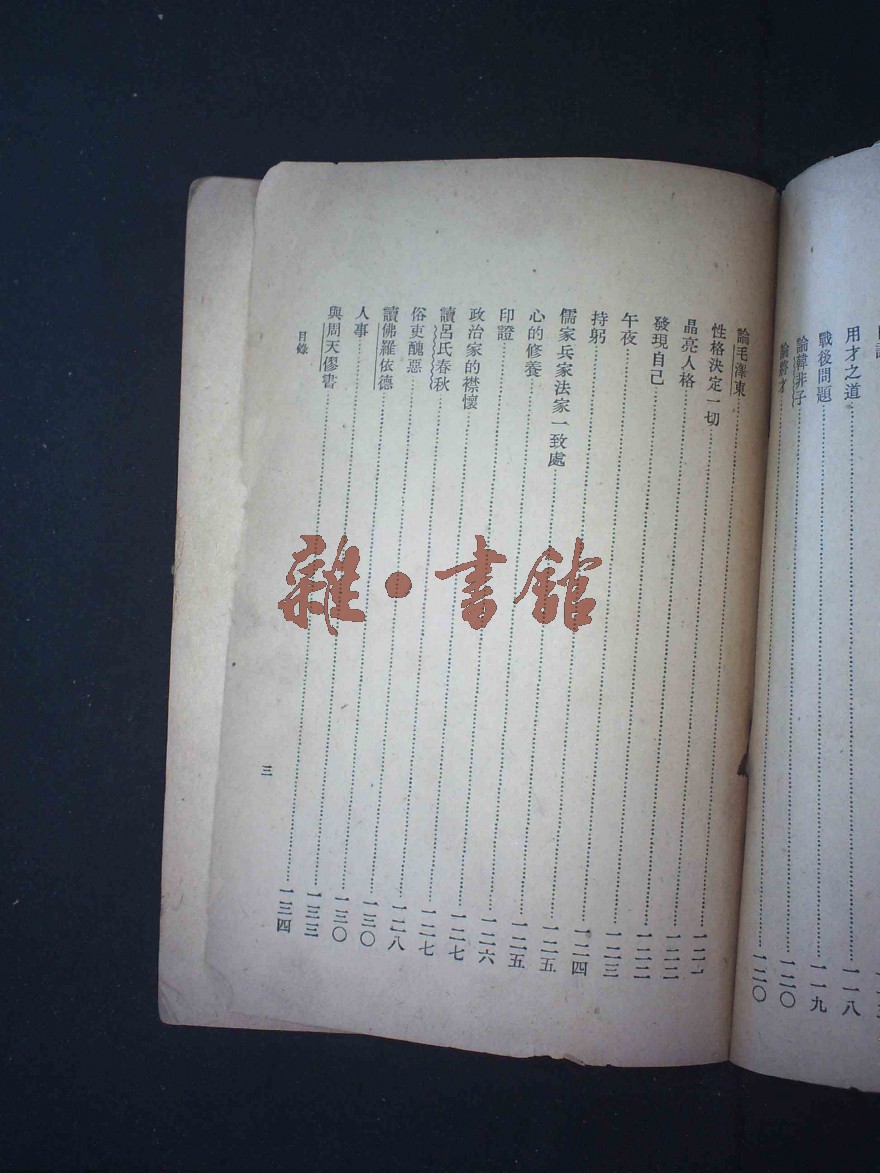 用才之道……一一八
戰後問題……一一九
論韓非子……一二〇
論將才……一二〇
論毛澤東……一二一
性格決定一切……一二二
晶亮人格……一二二
發現自己……一二三
午夜……一二四
持躬……一二五
儒家兵家法家一致處……一二五
心的修養……一二六
印證……一二七
政治家的襟懷……一二七
讀呂氏春秋……一二八
俗吏醜惡……一三〇
讀佛羅依德……一三〇
人事……一三三
與周天僇書……一三四
目錄
三
雜·書館